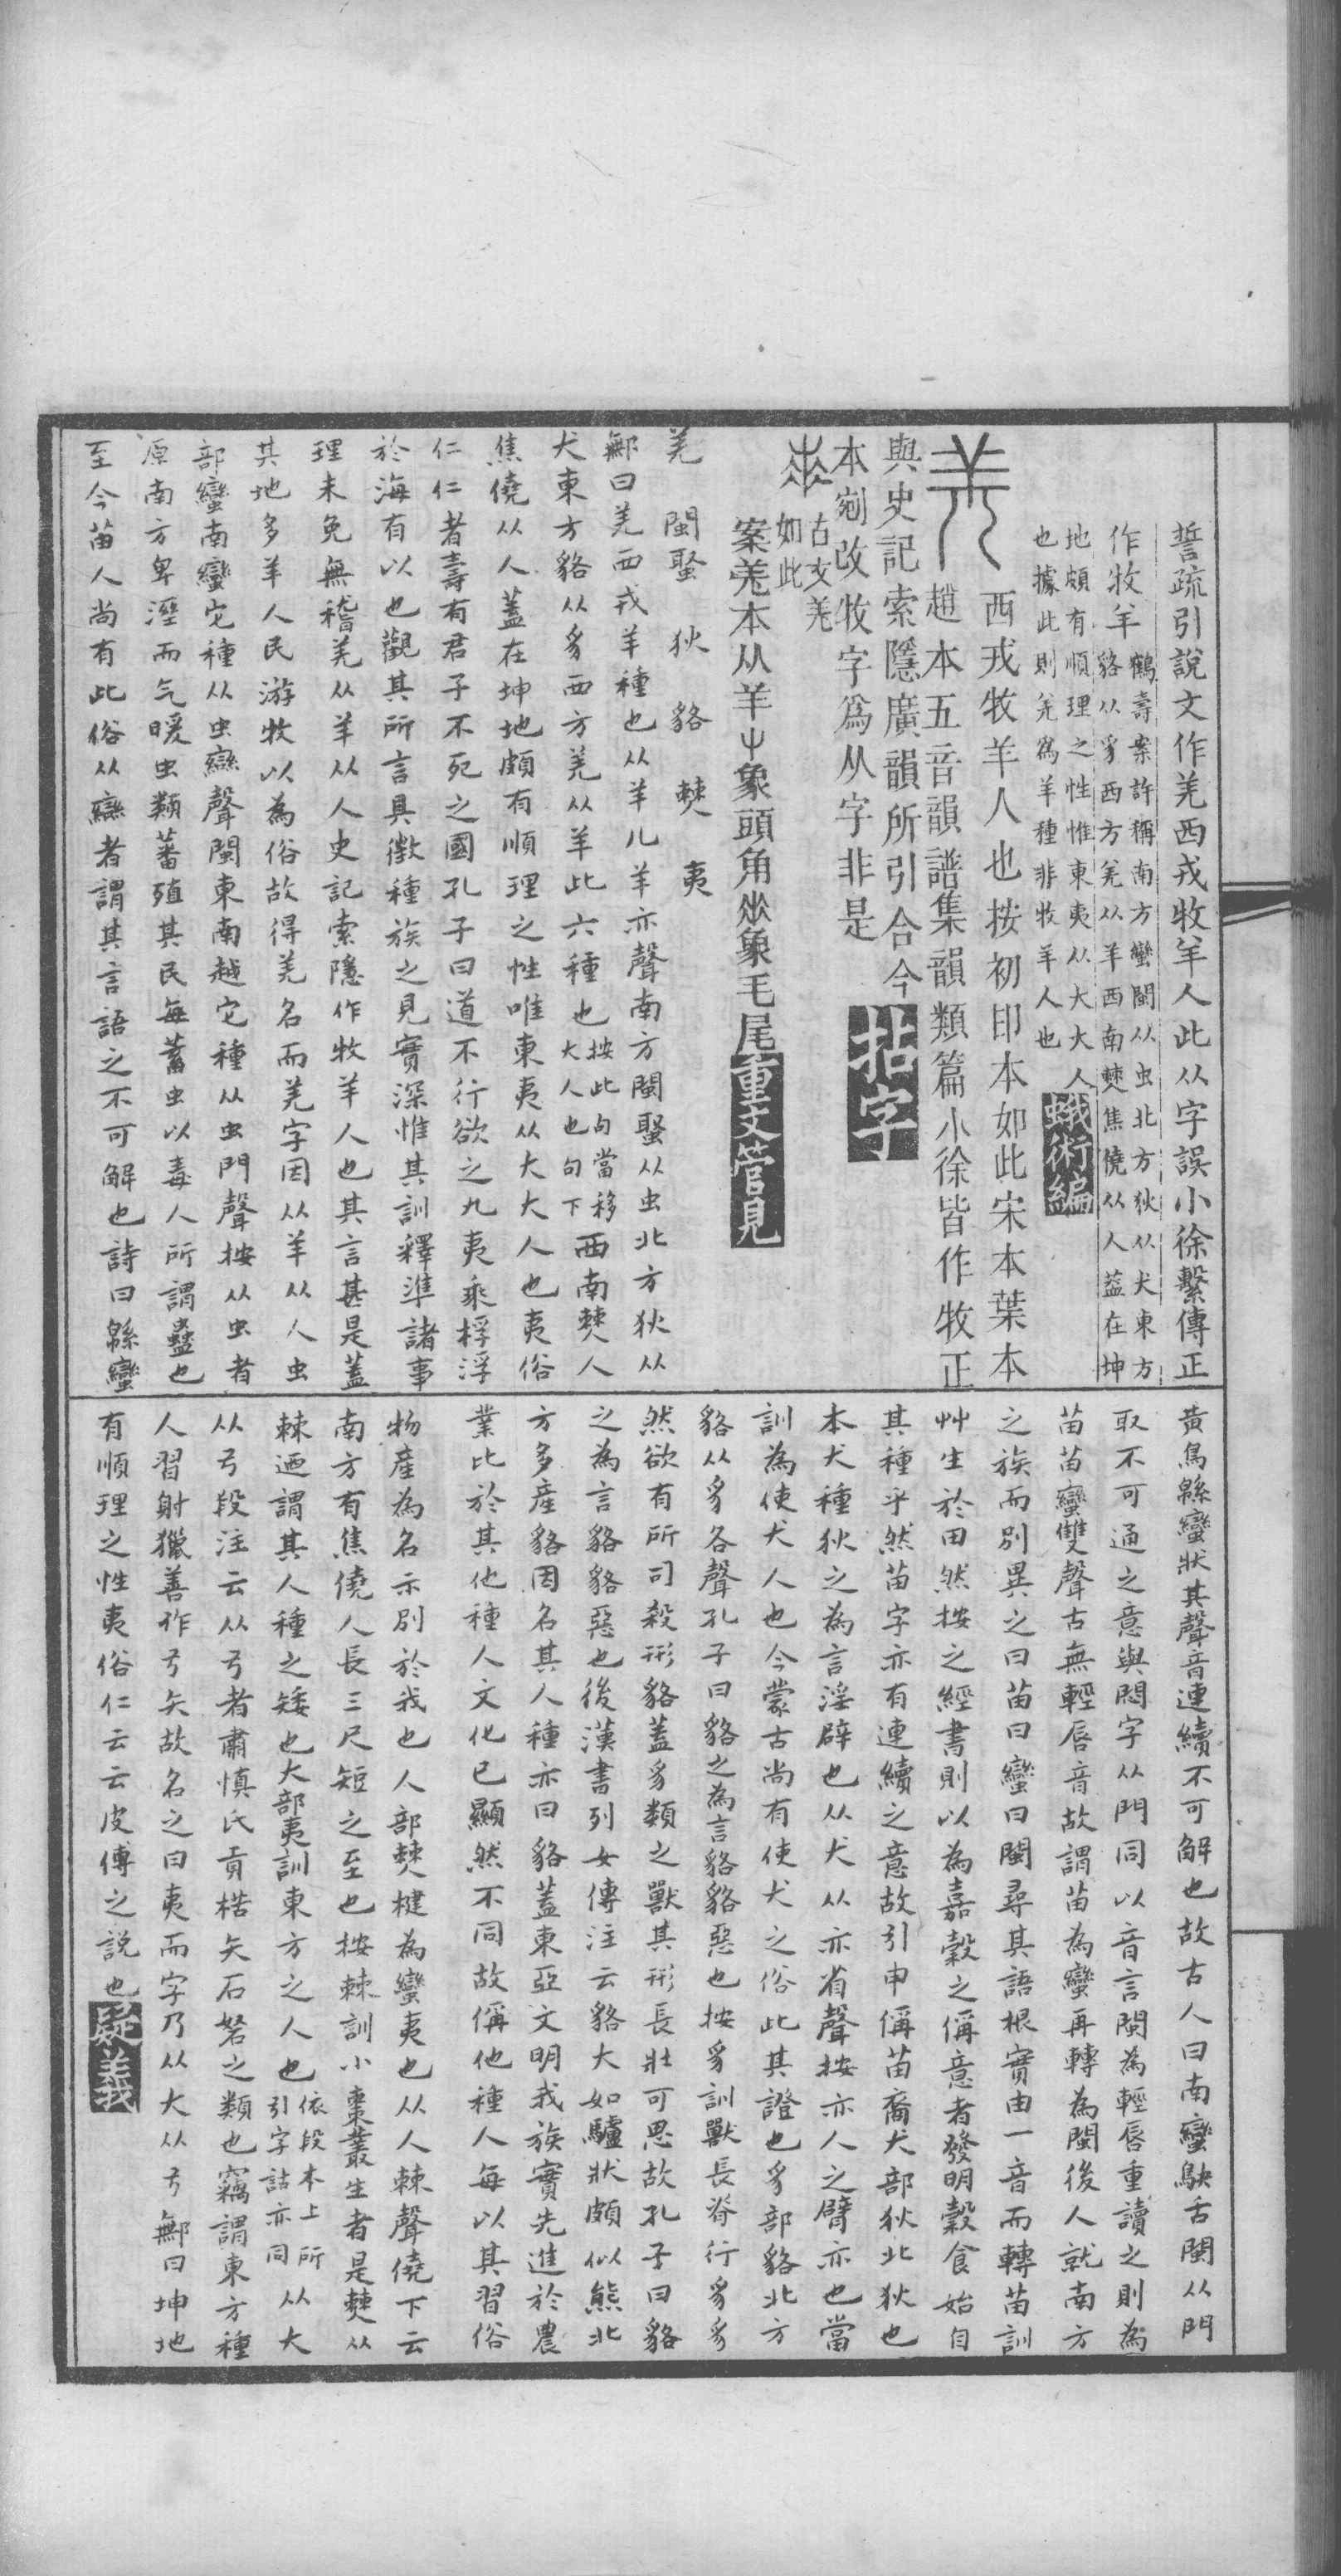 誓疏引說文作羌西戎牧羊人此从字誤小徐繫傳正
作牧羊鶴壽案許稱南方蠻閩从虫北方狄从犬東方
貉从豸西方羌从羊西南僰焦僥从人葢在坤
地頗有順理之性惟東夷从大大人
也據此則羌爲羊種非牧羊人也蛾術編
西戎牧羊人也按初印本如此宋本葉本
趙本五音韻譜集韻類篇小徐皆作牧正
與史記索隱廣韻所引合今
本剜改牧字爲从字非是拈字
古文羌
如此
案羌本从羊屮象頭角㸚象毛尾重文管見
羌 閩蛩 狄 貉 僰 夷
鄦曰羌西戎羊種也从羊儿羊亦聲南方閩蛩从虫北方狄从
犬東方貉从豸西方羌从羊此六種也按此句當移大人也句下西南僰人
焦僥从人蓋在坤地頗有順理之性唯東夷从大大人也夷俗
仁仁者壽有君子不死之國孔子曰道不行欲之九夷乘桴浮
於海有以也觀其所言具徵種族之見實深惟其訓釋準諸事
理未免無稽羌从羊从人史記索隱作牧羊人也其言甚是蓋
其地多羊人民游牧以為俗故得羌名而羌字因从羊从人虫
部蠻南蠻它種从虫䜌聲閩東南越它種从虫門聲按从虫者
原南方卑溼而气暖虫類蕃殖其民每蓄虫以毒人所謂蠱也
至今苗人尚有此俗从䜌者謂其言語之不可解也詩曰緜蠻
黃鳥緜蠻狀其聲音連續不可解也故古人曰南蠻鴃舌閩从門
取不可通之意與悶字从門同以音言閩為輕唇重讀之則為
苗苗蠻雙聲古無輕唇音故謂苗為蠻再轉為閩後人就南方
之族而別異之曰苗曰蠻曰閩尋其語根實由一音而轉苗訓
艸生於田然按之經書則以為嘉穀之偁意者發明穀食始自
其種乎然苗字亦有連續之意故引申偁苗裔犬部狄北狄也
本犬種狄之為言淫辟也从犬从亦省聲按亦人之臂亦也當
訓為使犬人也今蒙古尚有使犬之俗此其證也豸部貉北方
貉从豸各聲孔子曰貉之為言貉貉惡也按豸訓獸長脊行豸豸
然欲有所司殺形貉蓋豸類之獸其形長壯可思故孔子曰貉
之為言貉貉惡也後漢書列女傳注云貉大如驢狀頗似熊北
方多產貉因名其人種亦曰貉蓋東亞文明我族實先進於農
業比於其他種人文化已顯然不同故偁他種人每以其習俗
物產為名示別於我也人部僰楗為蠻夷也从人棘聲僥下云
南方有焦僥人長三尺短之至也按棘訓小棗叢生者是僰从
棘迺謂其人種之矮也大部夷訓東方之人也依段本上所引字詁亦同从大
从弓段注云从弓者肅慎氏貢楛矢石砮之類也竊謂東方種
人習射獵善作弓矢故名之曰夷而字乃从大从弓鄦曰坤地
有順理之性夷俗仁云云皮傅之說也疑義